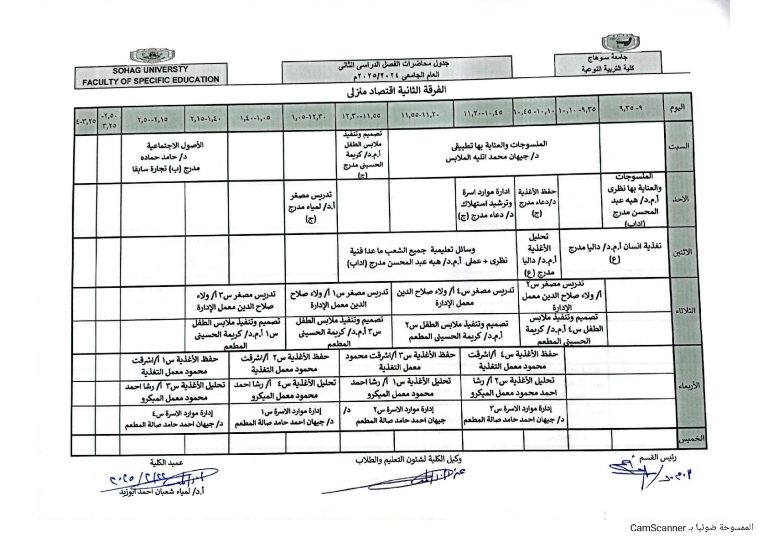 جامعة سوهاج
كلية التربية النوعية
جدول محاضرات الفصل الدراسى الثانى
العام الجامعي ٢٠٢٥/٢٠٢٤م
SOHAG UNIVERSTY
FACULTY OF SPECIFIC EDUCATION
الفرقة الثانية اقتصاد منزلى
اليوم
٩-٩,٣٥
٩,٣٥-١٠,١٠
١٠,١٠-١٠,٤٥
١٠,٤٥-١١,٢٠
١١,٢٠-١١,٥٥
١١,٥٥-١٢,٣٠
١٢,٣٠-١,٠٥
١,٠٥-١,٤٠
١,٤٠-٢,١٥
٢,١٥-٢,٥٠
٢,٥٠-
٣,٢٥
٣,٢٥-٤
السبت
الملسوجات والعناية بها تطبيقى
د/ جيهان محمد اتليه الملابس
تصميم وتنفيذ
ملابس الطفل
أ.م.د/ كريمة
الحسينى مدرج
(ج)
الأصول الاجتماعية
د/ حامد حماده
مدرج (ب) تجارة سابقا
الاحد
الملسوجات
والعناية بها نظرى
أ.م.د/ هبه عبد
المحسن مدرج
(اداب)
حفظ الأغذية
د/دعاء مدرج
(ج)
ادارة موارد اسرة
وترشيد استهلاك
د/ دعاء مدرج (ج)
تدريس مصغر
أ.د/ لمياء مدرج
(ج)
الاثنين
تغذية انسان أ.م.د/ داليا مدرج
(ع)
تحليل
الأغذية
أ.م.د/ داليا
مدرج (ع)
وسائل تعليمية جميع الشعب ما عدا فنية
نظرى + عملى أ.م.د/ هبه عبد المحسن مدرج (اداب)
الثلاثاء
تدريس مصغر س٢
أ/ ولاء صلاح الدين معمل
الإدارة
تدريس مصغر س٤ أ/ ولاء صلاح الدين
معمل الإدارة
تدريس مصغر س١ أ/ ولاء صلاح
الدين معمل الإدارة
تدريس مصغر س٣ أ/ ولاء
صلاح الدين معمل الإدارة
تصميم وتنفيذ ملابس
الطفل س٤ أ.م.د/ كريمة
الحسينى المطعم
تصميم وتنفيذ ملابس الطفل س٢
أ.م.د/ كريمة الحسينى المطعم
تصميم وتنفيذ ملابس الطفل
س٣ أ.م.د/ كريمة الحسينى
المطعم
تصميم وتنفيذ ملابس الطفل
س١ أ.م.د/ كريمة الحسينى
المطعم
الأربعاء
حفظ الأغذية س٤ أ/اشرقت
محمود معمل التغذية
حفظ الأغذية س٣ أ/اشرقت محمود
معمل التغذية
حفظ الأغذية س٢ أ/اشرقت
محمود معمل التغذية
حفظ الأغذية س١ أ/اشرقت
محمود معمل التغذية
تحليل الأغذية س٢ أ/ رشا
احمد محمود معمل الميكرو
تحليل الأغذية س١ أ/ رشا احمد
محمود معمل الميكرو
تحليل الأغذية س٤ أ/ رشا احمد
محمود معمل الميكرو
تحليل الأغذية س٣ أ/ رشا احمد
محمود معمل الميكرو
إدارة موارد الاسرة س٣
د/ جيهان احمد حامد صالة المطعم
إدارة موارد الاسرة س٢ د/
جيهان احمد حامد صالة المطعم
إدارة موارد الاسرة س١
د/ جيهان احمد حامد صالة المطعم
إدارة موارد الاسرة س٤
د/ جيهان احمد حامد صالة المطعم
الخميس
رئيس القسم
وكيل الكلية لشئون التعليم والطلاب
عميد الكلية
أ.د/ لمياء شعبان احمد ابوزيد
الممسوحة ضوئيا بـ CamScanner